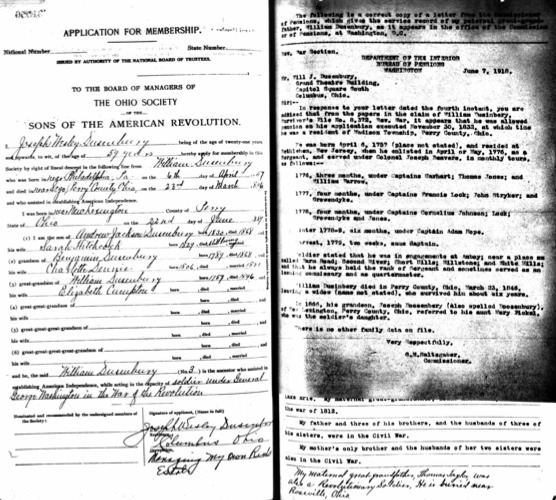 APPLICATION FOR MEMBERSHIP.
National Number
State Number
ISSUED BY AUTHORITY OF THE NATIONAL BOARD OF TRUSTEES.
TO THE BOARD OF MANAGERS OF
THE OHIO SOCIETY
OF THE
SONS OF THE AMERICAN REVOLUTION.
I, Joseph Wesley Dusenbury being of the age of twenty-one years
and upwards, to wit, of the age of 59 years hereby apply for membership in this
Society by right of lineal descent in the following line from William Dusenbury
who was born in near Philadelphia, Pa on the 6th day of April
and died in near Perry County, Ohio on the 23rd day of March
and who assisted in establishing American Independence.
I was born in near New Lexington County of Perry
State of Ohio on the 22nd day of June
(1) I am the son of Andrew Jackson Dusenbury born 1830, died
his wife Sarah Hitchcock born 1829, died
(2) grandson of Benjamin Dusenbury born 1789, died 1868
his wife Charlotte Dennis born 1806, died
(3) great-grandson of William Dusenbury born 1757, died 1846
his wife Elizabeth Crumpton
born , died , married
(4) great-great-grandson of
his wife born , died , married
(5) great-great-great-grandson of
his wife born , died , married
(6) great-great-great-great-grandson of
his wife born , died , married
and he, the said William Dusenbury (No. 3) is the ancestor who assisted in
establishing American Independence, while acting in the capacity of soldier under General
George Washington in the War of the Revolution
Nominated and recommended by the undersigned members of
the Society:
Signature of applicant. (Name in full)
Joseph Wesley Dusenbury
Columbus Ohio
Managing My own Real
Estate
The following is a correct copy of a letter from the Commissioner
of Pensions, which gives the service record of my paternal great-grand-
father, William Dusenbury, as it appears in the office of the Commission
er of Pensions, at Washington, D.C.
War Section.
DEPARTMENT OF THE INTERIOR
BUREAU OF PENSIONS
WASHINGTON
June 7, 1918.
Mr. Will J. Dusenbury,
Grand Theatre Building,
Capitol Square South
Columbus, Ohio.
Sir:
In response to your letter dated the fourth instant, you are
advised that from the papers in the claim of William Dusinbery,
Survivor's File No. 8,372, Rev. War, it appears that he was allowed
pension on application executed November 30, 1832, at which time
he was a resident of Madison Township, Perry County, Ohio.
He was born April 6, 1757 (place not stated), and resided at
Bethlehem, New Jersey, when he enlisted in April or May, 1776, as
Sergeant, and served under Colonel Joseph Beavers, in monthly tours,
as follows:
1776, three months, under Captains Carhart; Thomas Jones; and
William Barrow.
1777, four months, under Captains Francis Lock; John Stryker; and
Growendyke.
1778, four months, under Captains Cornelius Johnson; Lock;
Growendyke and Jones.
Winter 1778-9, six months, under Captain Adam Hope.
1779, two weeks, same Captain.
Soldier stated that he was in engagements at Amboy; near a place
called Farm Head; Second River; Short Hills; Millstone; and White Hills;
and that he always held the rank of Sergeant and sometimes served as an
issuing commissary and as quartermaster.
William Dusinbery died in Perry County, Ohio, March 23, 1846,
leaving a widow (name not stated), who survived him about six years.
In 1866, his grandson, Joseph Dusinbery (also spelled Dusenbury),
of New Lexington, Perry County, Ohio, referred to his aunt Mary Pickel,
who was the soldier's daughter.
There is no other family data on file.
Very Respectfully,
G.M.Saltzgaber,
Commissioner.
the war of 1812.
My father and three of his brothers, and the husbands of three of
his sisters, were in the Civil War.
My mother's only brother and the husbands of her two sisters were
also in the Civil War.
My maternal great grandfather, Thomas Taylor, was
also a Revolutionary Soldier. He is buried near
Roseville, Ohio